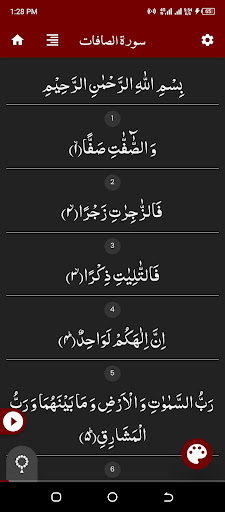 1:28 PM
سورة الصافات
بِسْمِ اللهِ الرَّحْمٰنِ الرَّحِيْمِ
1
وَالصّٰٓفّٰتِ صَفًّا﴿۱﴾
2
فَالزّٰجِرٰتِ زَجْرًا﴿۲﴾
3
فَالتّٰلِيٰتِ ذِكْرًا﴿۳﴾
4
اِنَّ اِلٰهَكُمْ لَوَاحِدٌ﴿۴﴾
5
رَبُّ السَّمٰوٰتِ وَ الْاَرْضِ وَ مَا بَيْنَهُمَا وَ رَبُّ
الْمَشَارِقِ﴿۵﴾
6